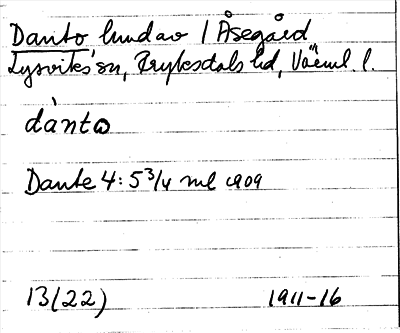 Danto, hundav / Åsegård
Lysviks sn, Fryksdals hd, Värml. l.
dànto
Dante 4: 5 3/4 ml 1909
13(22) 1911-16